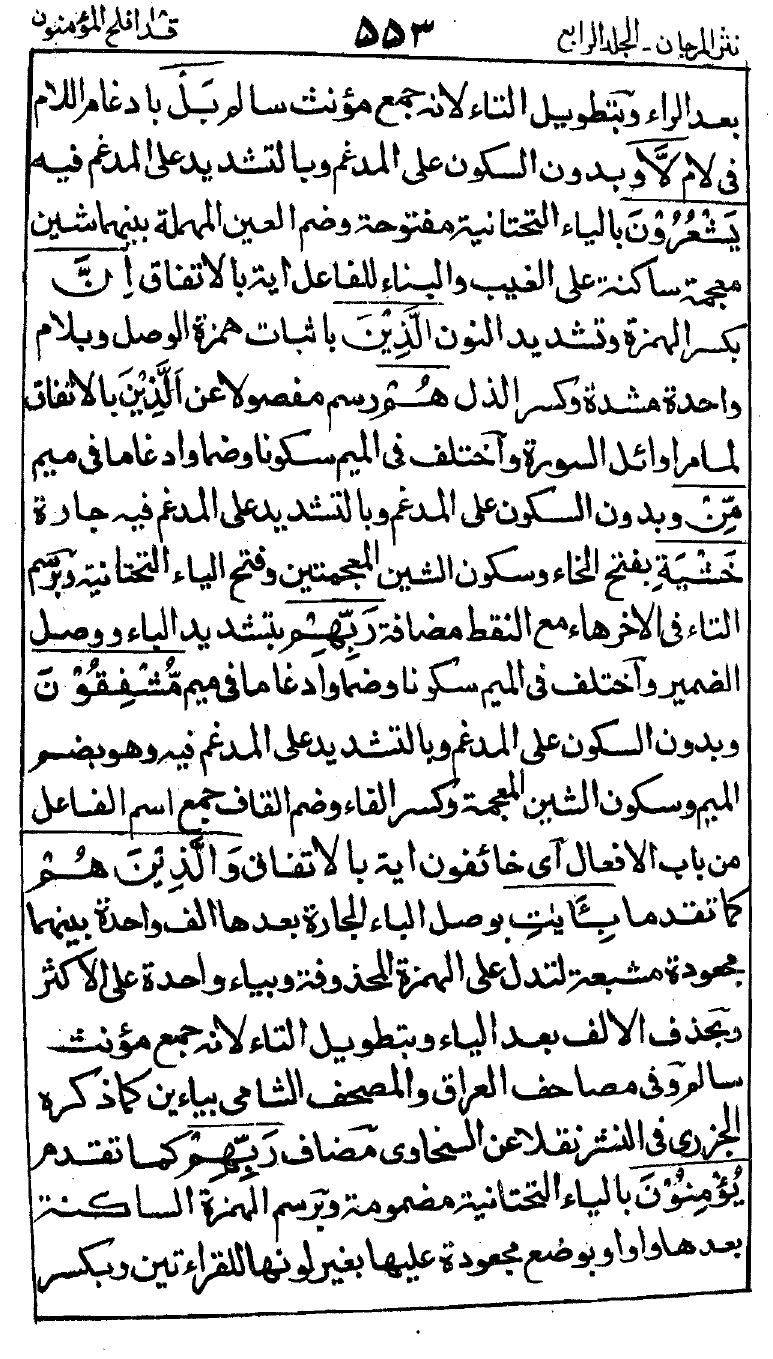 نثر المرجان - الجلد الرابع ۵۵۳ قد افلح المؤمنون
بعد الراء وبتطويل التاء لانه جمع مؤنث سالم بَلْ بادغام اللام
فى لام لَّا وبدون السكون على المدغم وبالتشديد على المدغم فيه
يَشْعُرُوْنَ بالياء التحتانية مفتوحة وضم العين المهملة بينهما شين
معجمة ساكنة على الغيب والبناء للفاعل اية بالاتفاق اِنَّ
بكسر الهمزة وتشديد النون الَّذِيْنَ باثبات همزة الوصل وبلام
واحدة مشددة وكسر الذل هُمْ رسم مفصولا عن اَلَّذِيْنَ بالاتفاق
لما مر اوائل السورة وآختلف فى الميم سكونا وضما وادغاما فى ميم
مِّنْ وبدون السكون على المدغم وبالتشديد على المدغم فيه جارة
خَشْيَةِ بفتح الخاء وسكون الشين المعجمتين وفتح الياء التحتانية وبرسم
التاء فى الاخر هاء مع النقط مضافة رَبِّهِمْ بتشديد الباء ووصل
الضمير وآختلف فى الميم سكونا وضما وادغاما فى ميم مُّشْفِقُوْنَ
وبدون السكون على المدغم وبالتشديد على المدغم فيه وهو بضم
الميم وسكون الشين المعجمة وكسر الفاء وضم القاف جمع اسم الفاعل
من باب الافعال آى خائفون اية بالاتفاق وَالَّذِيْنَ هُمْ
كما تقدما بِـَٔايٰتِ بوصل الباء الجارة بعدها الف واحدة بينهما
مجعودة مشبعة لتدل على الهمزة المحذوفة وبياء واحدة على الاكثر
وبحذف الالف بعد الياء وبتطويل التاء لانه جمع مؤنث
سالم وفى مصاحف العراق والمصحف الشامى بياءين كما ذكره
الجزرى فى النشر نقلا عن السخاوى مضاف رَبِّهِمْ كما تقدم
يُؤْمِنُوْنَ بالياء التحتانية مضمومة وبرسم الهمزة الساكنة
بعدها واوا وبوضع مجعودة عليها بغير لونها للقراءتين وبكسر